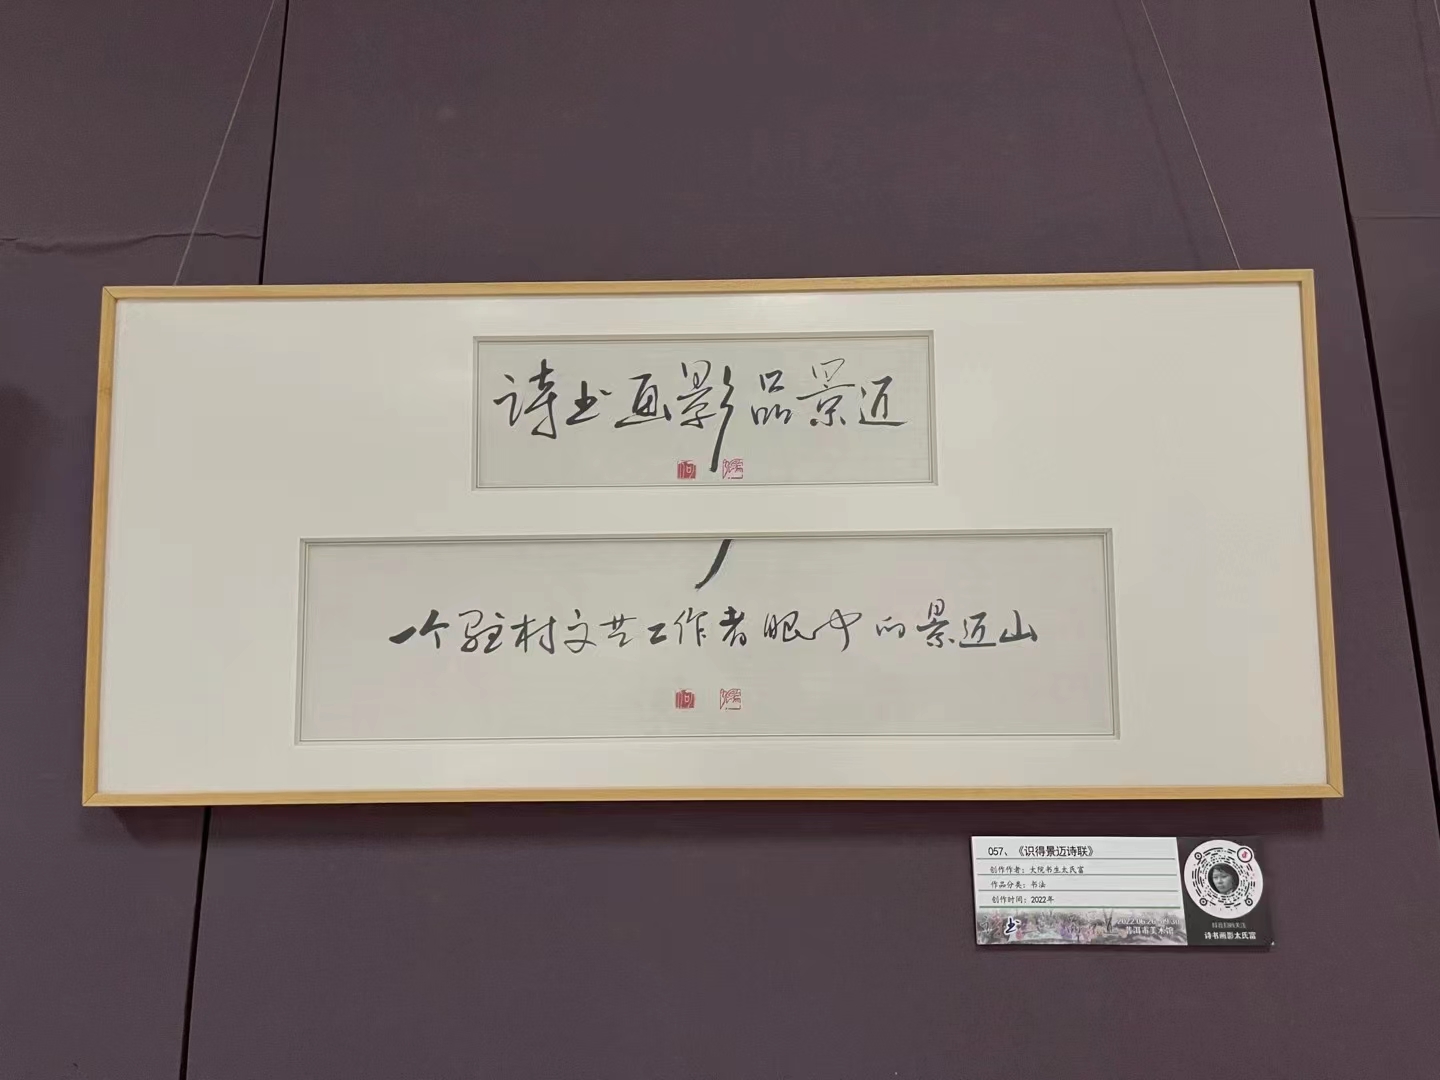 诗书画影品景迈
一个驻村文艺工作者眼中的景迈山
057、《识得景迈诗联》
创作作者：大院书生太氏富
作品分类：书法
创作时间：2022年
书
普洱市美术馆
诗书画影太氏富